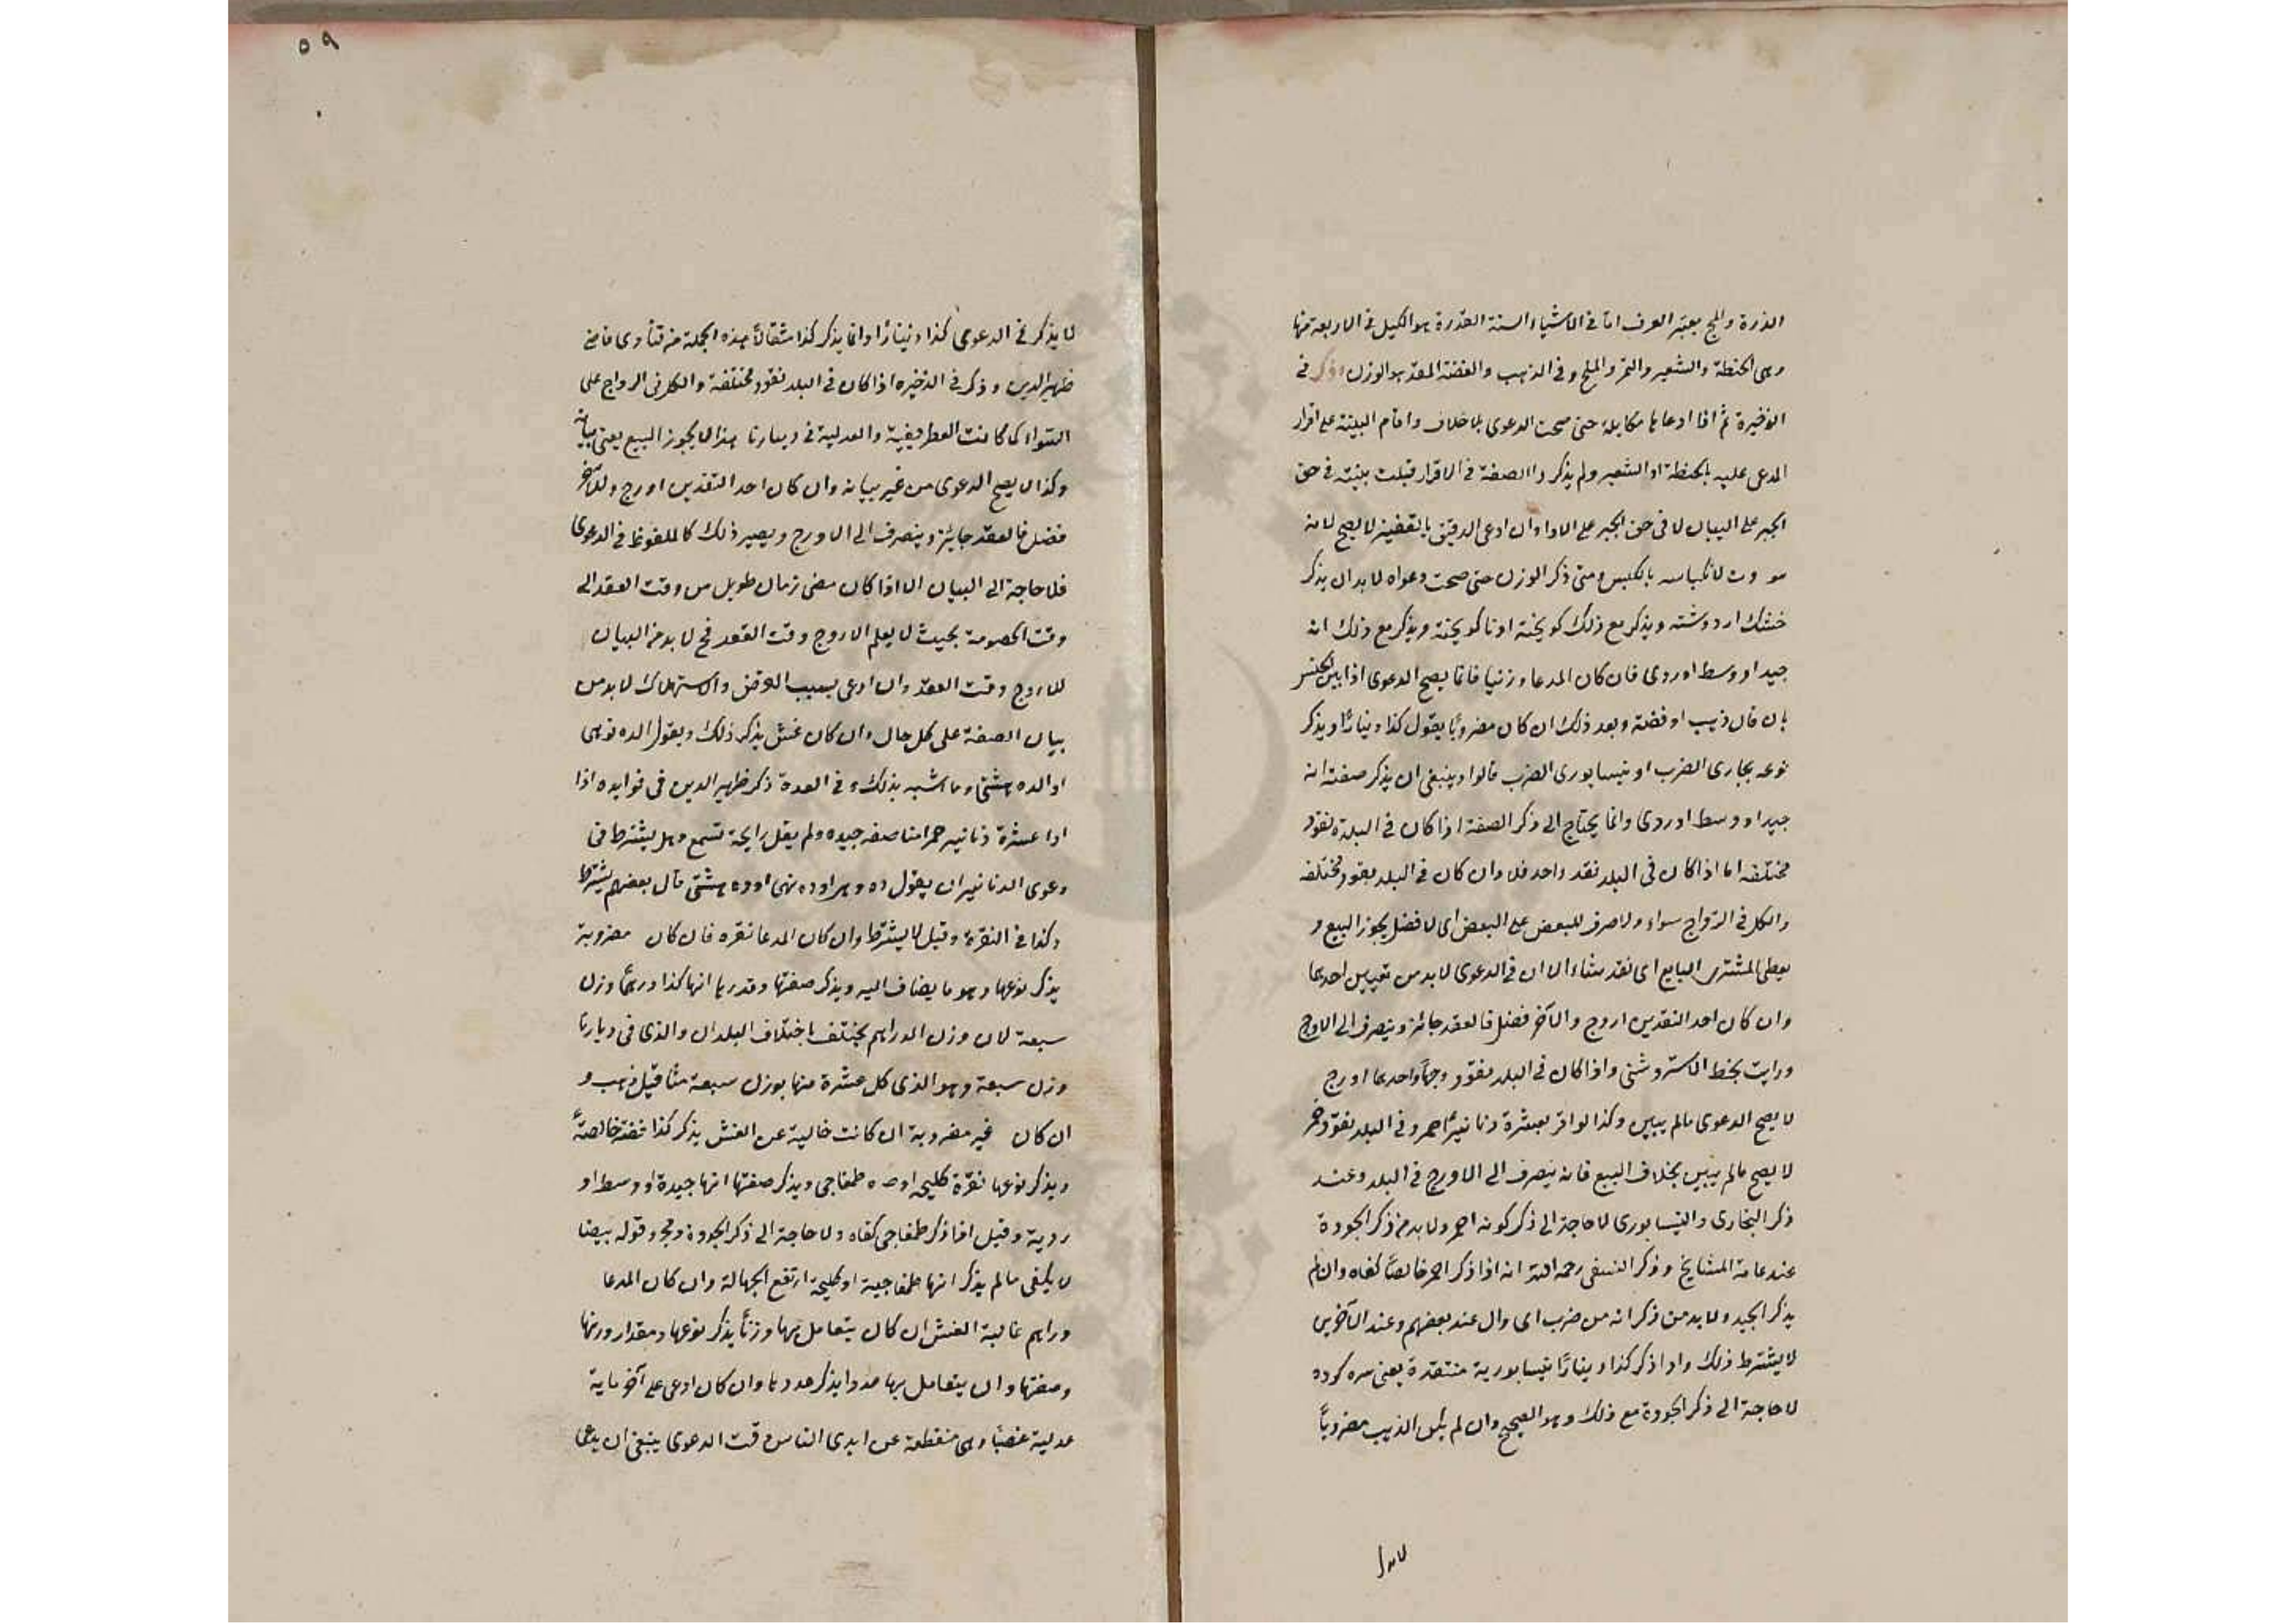 الذرة والملح يعتبر العرف اما في الاشياء الستة المقدرة هو الكيل في الاربعة منها
وهى الحنطة والشعير والتمر والملح وفي الذهب والفضة المقدر هو الوزن وذكر في
الذخيرة ثم اذا ادعاها مكايلة حتى صحت الدعوى بلا خلاف واقام البينة على اقرار
المدعى عليه بالحنطة او الشعير ولم يذكروا الصفة في الاقرار قبلت بينته في حق
الجبر على البيان لا في حق الجبر على الاداء وان ادعى الدقيق بالقفيز لا يصح لانه
بالكبس ومتى ذكر الوزن حتى صحت دعواه لا بد ان يذكر
خشك ارد وشسته ويذكر مع ذلك كوبخته او ناكوبخته ويذكر مع ذلك انه
جيد او وسط او ردى فان كان المدعا وزنيا فانما يصح الدعوى اذا بين الجنس
بان قال ذهب او فضة وبعد ذلك ان كان مضروبًا يقول كذا دينارًا ويذكر
نوعه بخارى الضرب او نيسابورى الضرب قالوا وينبغى ان يذكر صفته انه
جيد او وسط او ردى وانما يحتاج الى ذكر الصفة اذا كان في البلدة نقود
مختلفه اما اذا كان في البلد نقد واحد فلا وان كان في البلد نقود مختلفه
والكل في الرواج سواء ولا صرف للبعض على البعض اى لا فضل يجوز البيع و
يعطى المشترى البايع اى نقد شاء الا ان في الدعوى لا بد من تعيين احدهما
وان كان احد النقدين اروج والآخر فضل فالعقد جائز وينصرف الى الاروج
ورايت بخط الاستروشنى واذا كان في البلد نقود واحدها اروج
لا يصح الدعوى ما لم يبين وكذا لو اقر بعشرة دنانيرًا حمر وفي البلد نقود حمر
لا يصح ما لم يبين بخلاف البيع فانه ينصرف الى الاروج في البلد وعند
ذكر البخارى والنيسابورى لا حاجة الى ذكر كونه احمر ولا بد من ذكر الجودة
عند عامة المشايخ وذكر النسفى رحمه الله انه اذا ذكر احمر خالصًا كفاه وان لم
يذكر الجيد ولا بد من ذكر انه من ضرب اى وال عند بعضهم وعند الآخرين
لا يشترط ذلك واذا ذكر كذا دينارًا نيسابورية منتقدة يعنى سره كوده
لا حاجة الى ذكر الجودة مع ذلك وهو الصحيح وان لم يكن الذهب مضروبًا
٥٩
لا يذكر في الدعوى كذا دينارًا وانما يذكر كذا مثقالًا هذه الجملة من فتاوى قاضى
ظهير الدين وذكر في الذخيره اذا كان في البلد نقود مختلفة والكل في الرواج على
السواء كما كانت الغطريفية والعدلية في ديارنا هذا لا يجوز البيع بغير بيانه
وكذا لا يصح الدعوى من غير بيانه وان كان احد النقدين اروج وللآخر
فضل فالعقد جائز وينصرف الى الاروج ويصير ذلك كالملفوظ في الدعوى
فلا حاجة الى البيان الا اذا كان مضى زمان طويل من وقت العقد الى
وقت الخصومة بحيث لا يعلم الاروج وقت العقد فح لا بد من البيان
للاروج وقت العقد وان ادعى بسبب القرض والاستهلاك لا بد من
بيان الصفة على كل حال وان كان غش يذكر ذلك ويقول الده نوهى
او الده هشتى وما اشبه بذلك وفي العدة ذكر ظهير الدين فى فوايده اذا
ادا عشرة دنانير حمرا مناصفه جيده ولم يقل رايجة تسمع وهل يشترط فى
دعوى الدنانير ان يقول ده وهى او ده نهى او ده هشتى قال بعضهم يشترط
وكذا في النقرة وقيل لا يشترط وان كان المدعا نقره فان كان مضروبة
يذكر نوعها وهو ما يضاف اليه ويذكر صفتها وقدرها انها كذا درهمًا وزن
سبعة لان وزن الدراهم يختلف باختلاف البلدان والذى فى ديارنا
وزن سبعة وهو الذى كل عشرة منها بوزن سبعة مثاقيل ذهب و
ان كان غير مضروبة ان كانت خالية عن الغش يذكر كذا فضة خالصةً
ويذكر نوعها نقرة كليجه او طمغاجى ويذكر صفتها انها جيدة او وسط او
ردية وقيل اذا ذكر طمغاجى كفاه ولا حاجة الى ذكر الجودة ومجرد قوله بيضا
لا يكفى ما لم يذكر انها طمغاجية او كليجة ارتفع الجهالة وان كان المدعا
دراهم غالبة الغش ان كان يتعامل بها وزنًا يذكر نوعها ومقدار وزنها
وصفتها وان يتعامل بها عددا يذكر عددها وان كان ادعى على آخر ماية
عدلية غصبًا وهى منقطعة عن ايدى الناس وقت الدعوى ينبغى ان يدعى